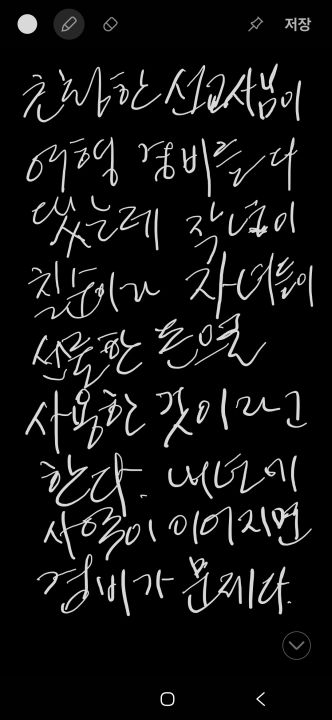 저장
친한 선교사님이
여행 경비를 다
썼는데 작년이
칠순이라 자녀들이
선물한 돈을
사용한 것이라고
한다. 내년에
사역이 이어지면
경비가 문제다.